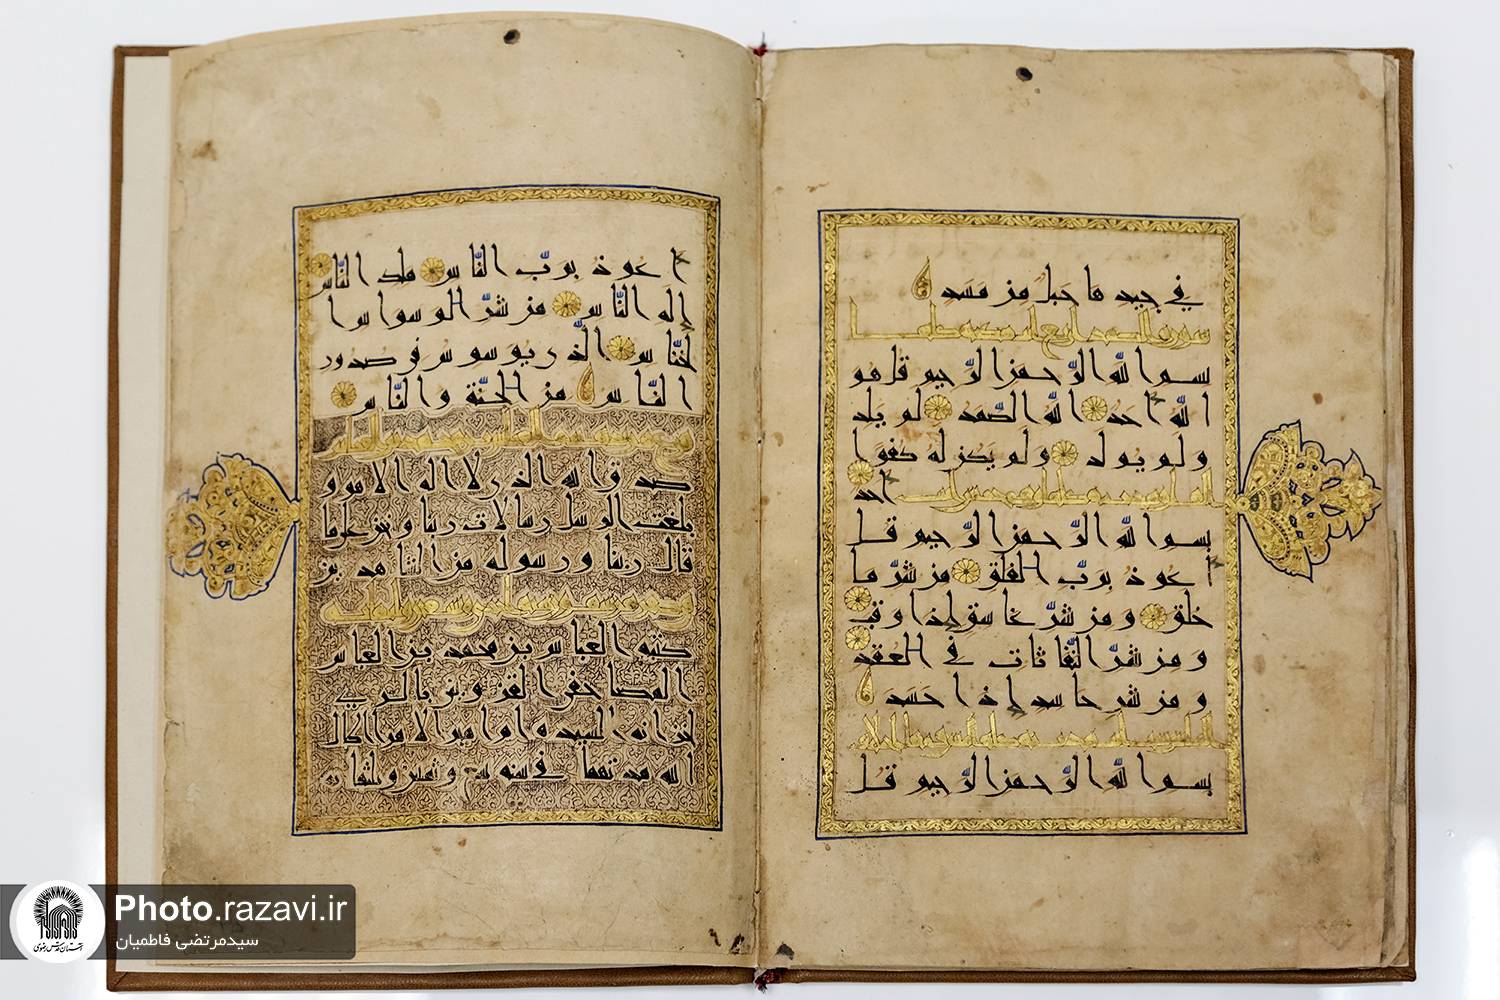 في جيد ها حبل من مسد
سورة
بسم الله الرحمن الرحيم قل هو
الله احد الله الصمد لم يلد
ولم يولد ولم يكن له كفوا
احد
بسم الله الرحمن الرحيم قل
اعوذ برب الفلق من شر ما
خلق ومن شر غاسق اذا وقب
ومن شر النفاثات في العقد
ومن شر حاسد اذا حسد
بسم الله الرحمن الرحيم قل
اعوذ برب الناس ملك الناس
اله الناس من شر الوسواس ا
لخناس الذي يوسوس في صدور
الناس من الجنة والناس
صدق الله الذي لا اله الا هو و
بلغت الرسل رسالات ربنا ونحن على ما
قال ربنا ورسوله من الشاهدين
كتبه العباس بن محمد بن العباس
المصاحفي القزويني بالري
لخزانة السيد
الله في سنة وثلثمائة
Photo.razavi.ir
سیدمرتضی فاطمیان
آستان قدس رضوی